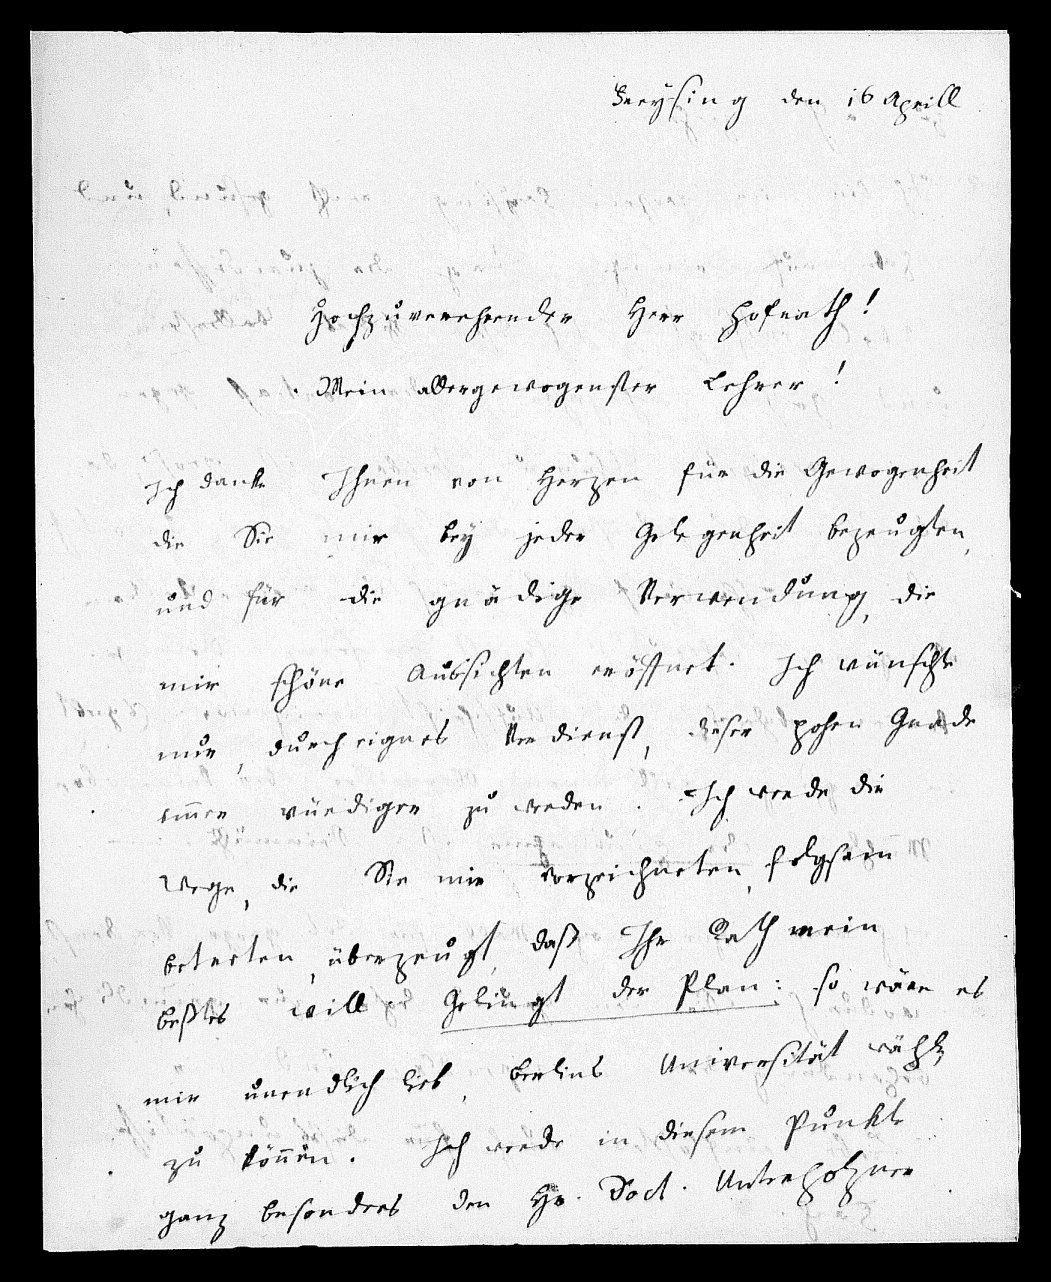 Freysing den 16 Aprill
Hochzuverehrender Herr Hofrath!
Mein allergewogenster Lehrer!
Ich danke Ihnen von Herzen für die Gewogenheit
die Sie mir bey jeder Gelegenheit bezeugten,
und für die gnädige Verwendung, die
mir schöne Aussichten eröffnet. Ich wünschte
nur, durch eignes Verdienst, dieser hohen Gnade
immer würdiger zu werden. Ich werde die
Wege, die Sie mir vorzeichneten, folgsam
betreten, überzeugt, daß Ihr Rath mein
beßtes will. Gelingt der Plan: so wäre es
mir unendlich lieb, Berlins Universität wählen
zu können. Ich werde in diesem Punkte
ganz besonders den Hr. Doct. Unterholzner